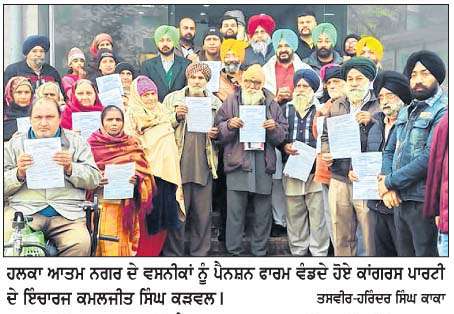 ਹਲਕਾ ਆਤਮ ਨਗਰ ਦੇ ਵਸਨੀਕਾਂ ਨੂੰ ਪੈਨਸ਼ਨ ਫਾਰਮ ਵੰਡਦੇ ਹੋਏ ਕਾਂਗਰਸ ਪਾਰਟੀ
ਦੇ ਇੰਚਾਰਜ ਕਮਲਜੀਤ ਸਿੰਘ ਕੜਵਲ। ਤਸਵੀਰ-ਹਰਿੰਦਰ ਸਿੰਘ ਕਾਕਾ